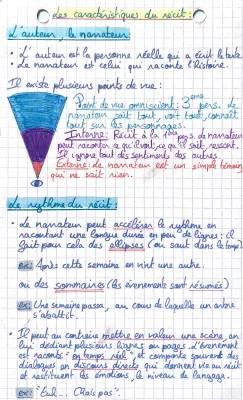 Les caractéristiques du récit :
L'auteur, le narrateur
• L'auteur est la personne réelle qui a écrit le texte
• Le narrateur est celui qui raconte l'histoire.
Il existe plusieurs points de vue :
Point de vue omniscient : 3ème pers. Le
narrateur sait tout, voit tout, connaît
tout sur les personnages.
Interne : Récit à la 1ère pers. le narrateur
peut raconter ce qu'il voit, ce qu'il sait, ressent.
Il ignore tout des sentiments des autres.
Externe : Le narrateur est un simple témoin
qui ne sait rien.
Le rythme du récit :
• Le narrateur peut accélérer le rythme en
racontant une longue durée en peu de lignes : il
fait pour cela des ellipses (ou saut dans le temps)
ex : Après cette semaine en vint une autre.
ou des sommaires (les événements sont résumés)
ex : Une semaine passa, au cours de laquelle un arbre
s'abattit.
• Il peut au contraire mettre en valeur une scène, en
lui dédiant plusieurs lignes ou pages. L'événement
est raconté "en temps réel", et comporte souvent des
dialogues en discours directs qui donnent vie au récit
et restituent les émotions, le niveau de langage.
ex : "Euh... Chais pas".